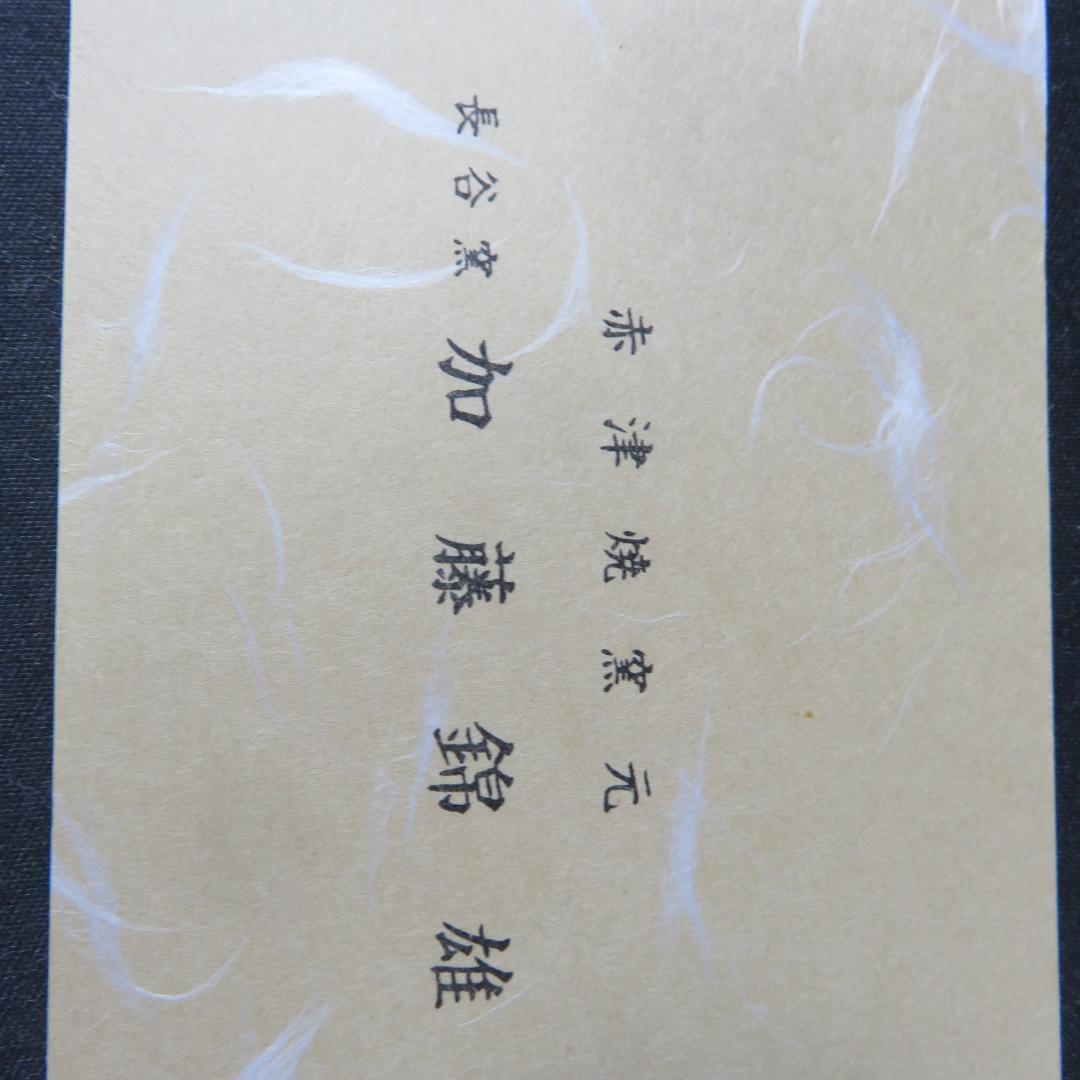 赤津焼窯元
長谷窯 加藤錦雄